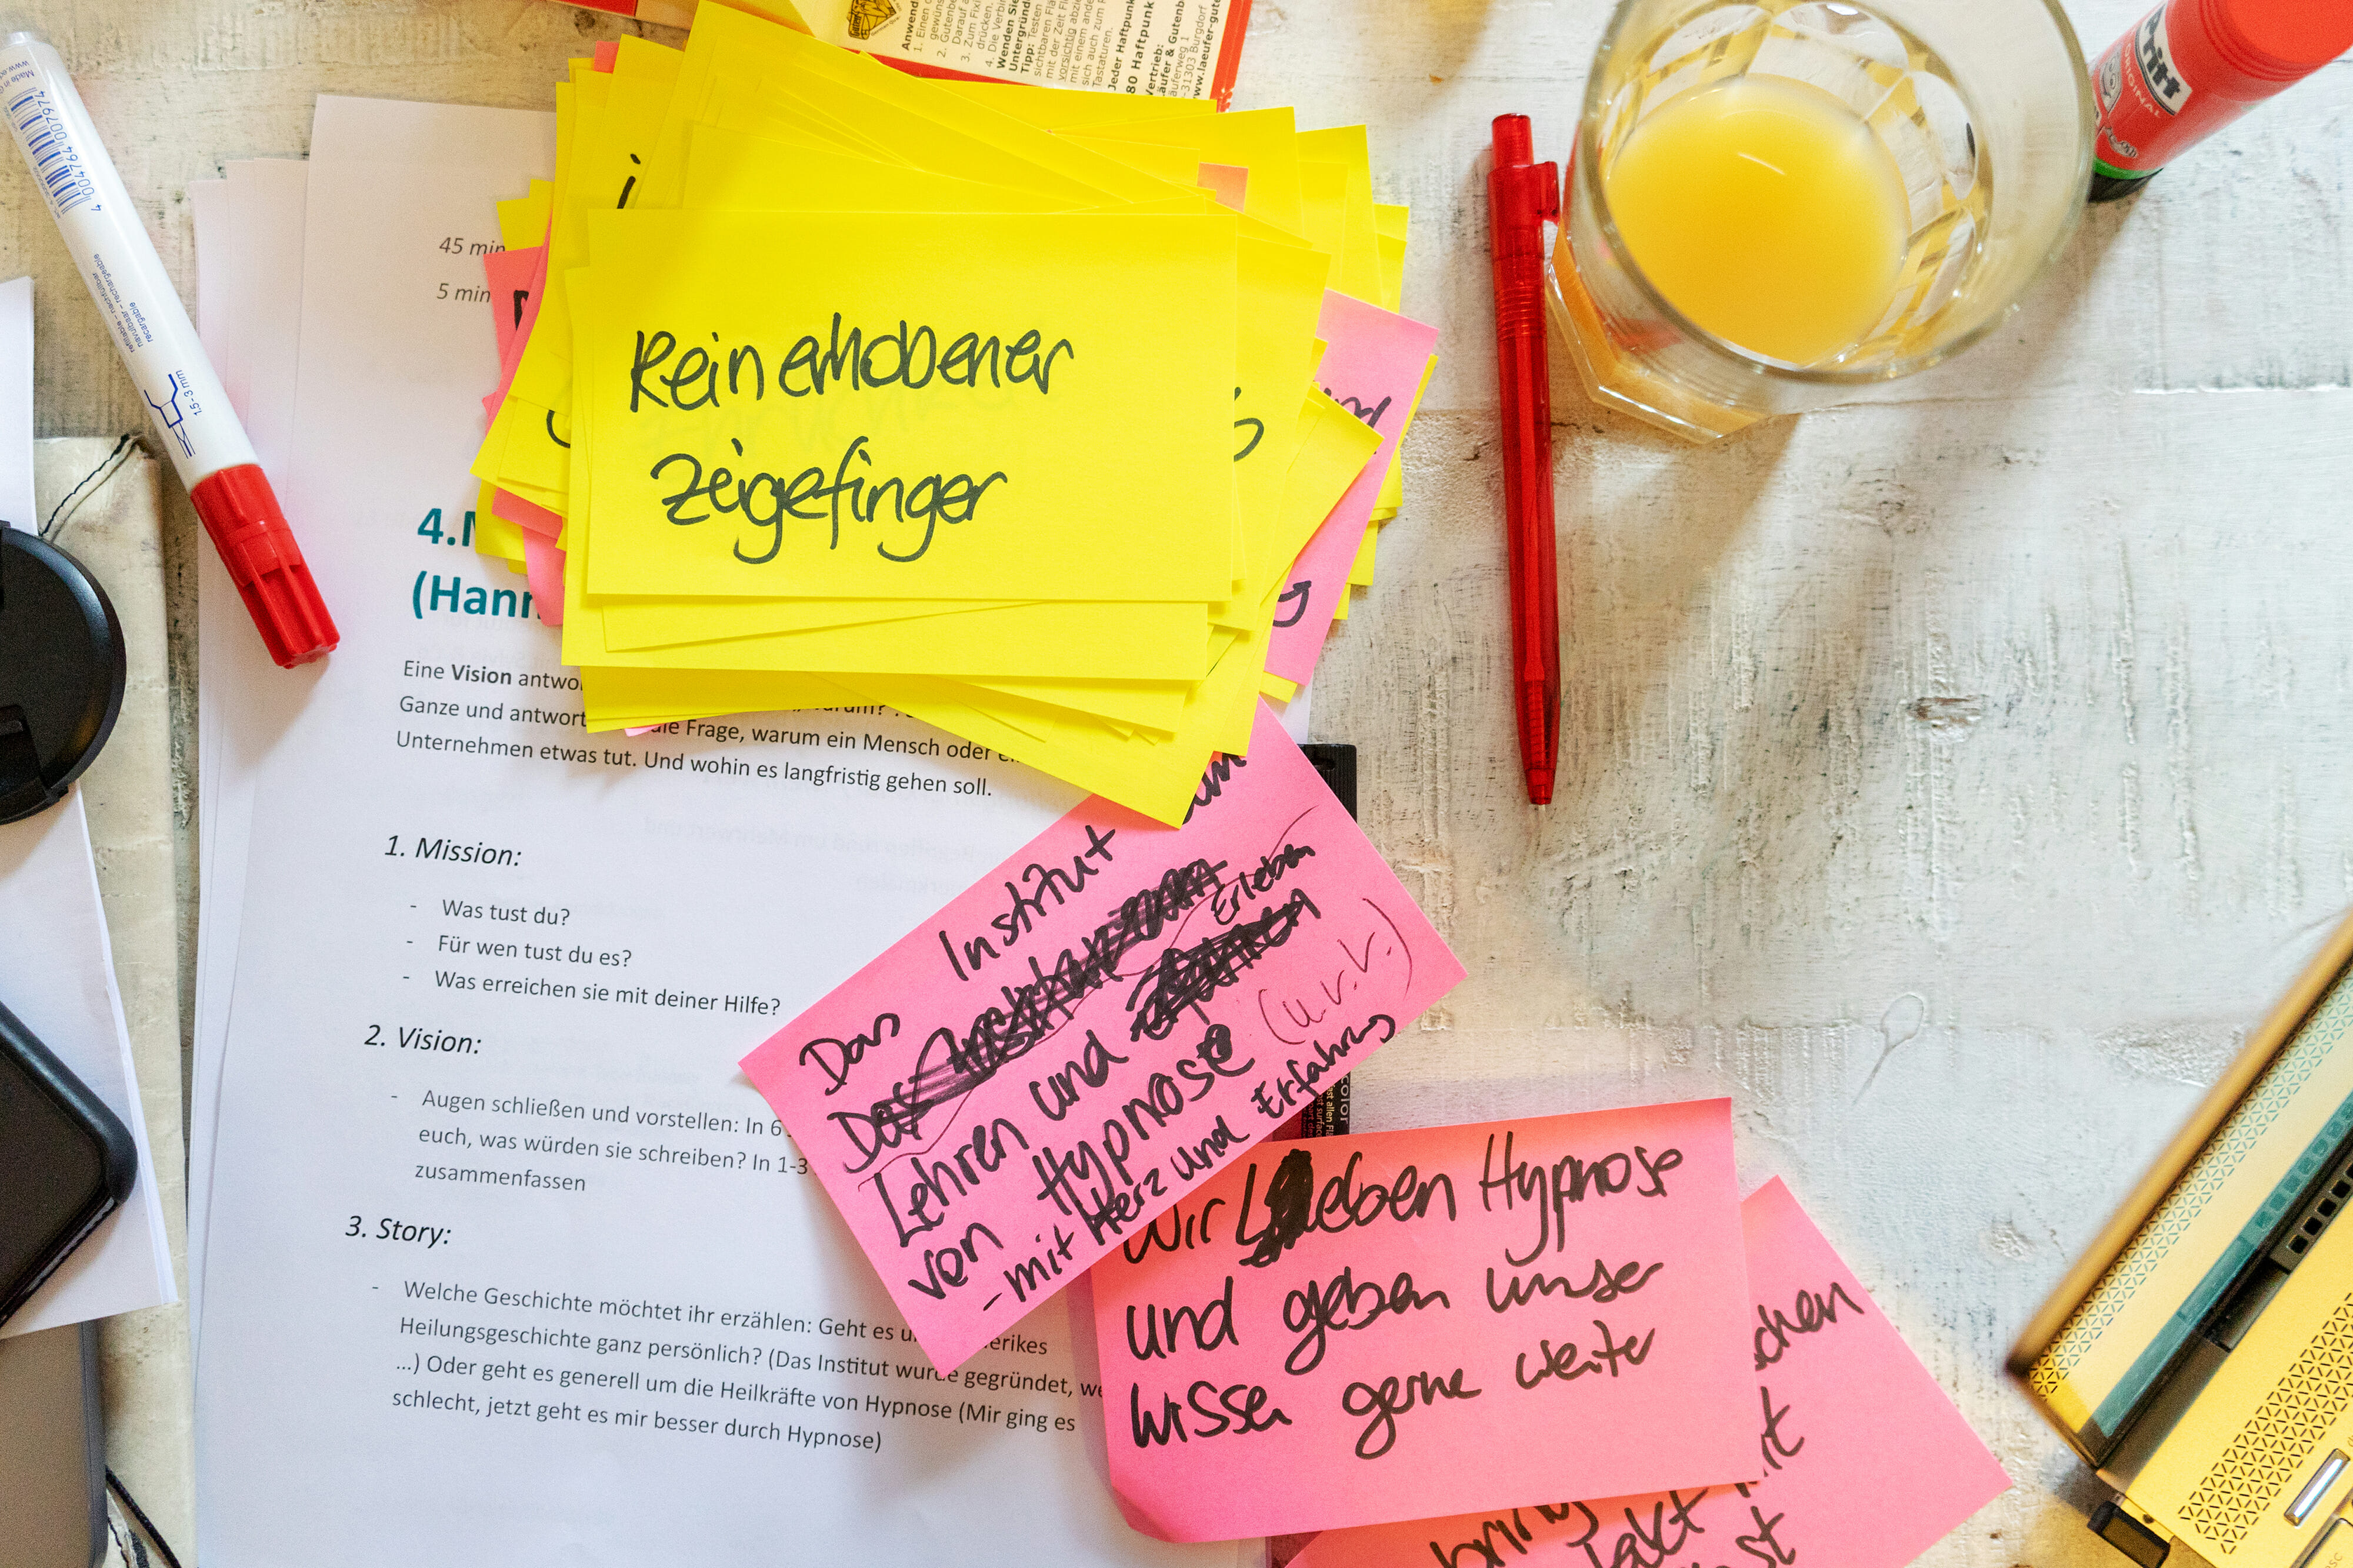 Anwend
1. Einen
Tipp: Testen
sichtbaren
mit der Zeit
vorsichtig
mit einem
sich auch zum
Tastaturen.
Jeder Haftpunk
80 Haftpunk
Vertrieb:
Läufer & Gutenb
Läuferweg 1
-31303 Burgdorf
www.laeufer-gute
Pritt
ORIGINAL
Made in
4 004764 007974
refillable – nachfüllbar
recargable – rechargeable
1,5-3 mm
45 min
5 min
Kein erhobener
Zeigefinger
4.
(Hann
Eine Vision antwo
Ganze und antwort die Frage, warum ein Mensch oder
Unternehmen etwas tut. Und wohin es langfristig gehen soll.
1. Mission:
- Was tust du?
- Für wen tust du es?
- Was erreichen sie mit deiner Hilfe?
2. Vision:
- Augen schließen und vorstellen: In 6
euch, was würden sie schreiben? In 1-3
zusammenfassen
3. Story:
- Welche Geschichte möchtet ihr erzählen: Geht es u erikes
Heilungsgeschichte ganz persönlich? (Das Institut wurde gegründet, we
...) Oder geht es generell um die Heilkräfte von Hypnose (Mir ging es
schlecht, jetzt geht es mir besser durch Hypnose)
Das Institut zum
Erleben
Lehren und
von Hypnose (u.v.k.)
- mit Herz und Erfahrung
Wir Leben Hypnose
und geben unser
Wissen gerne weiter
chen